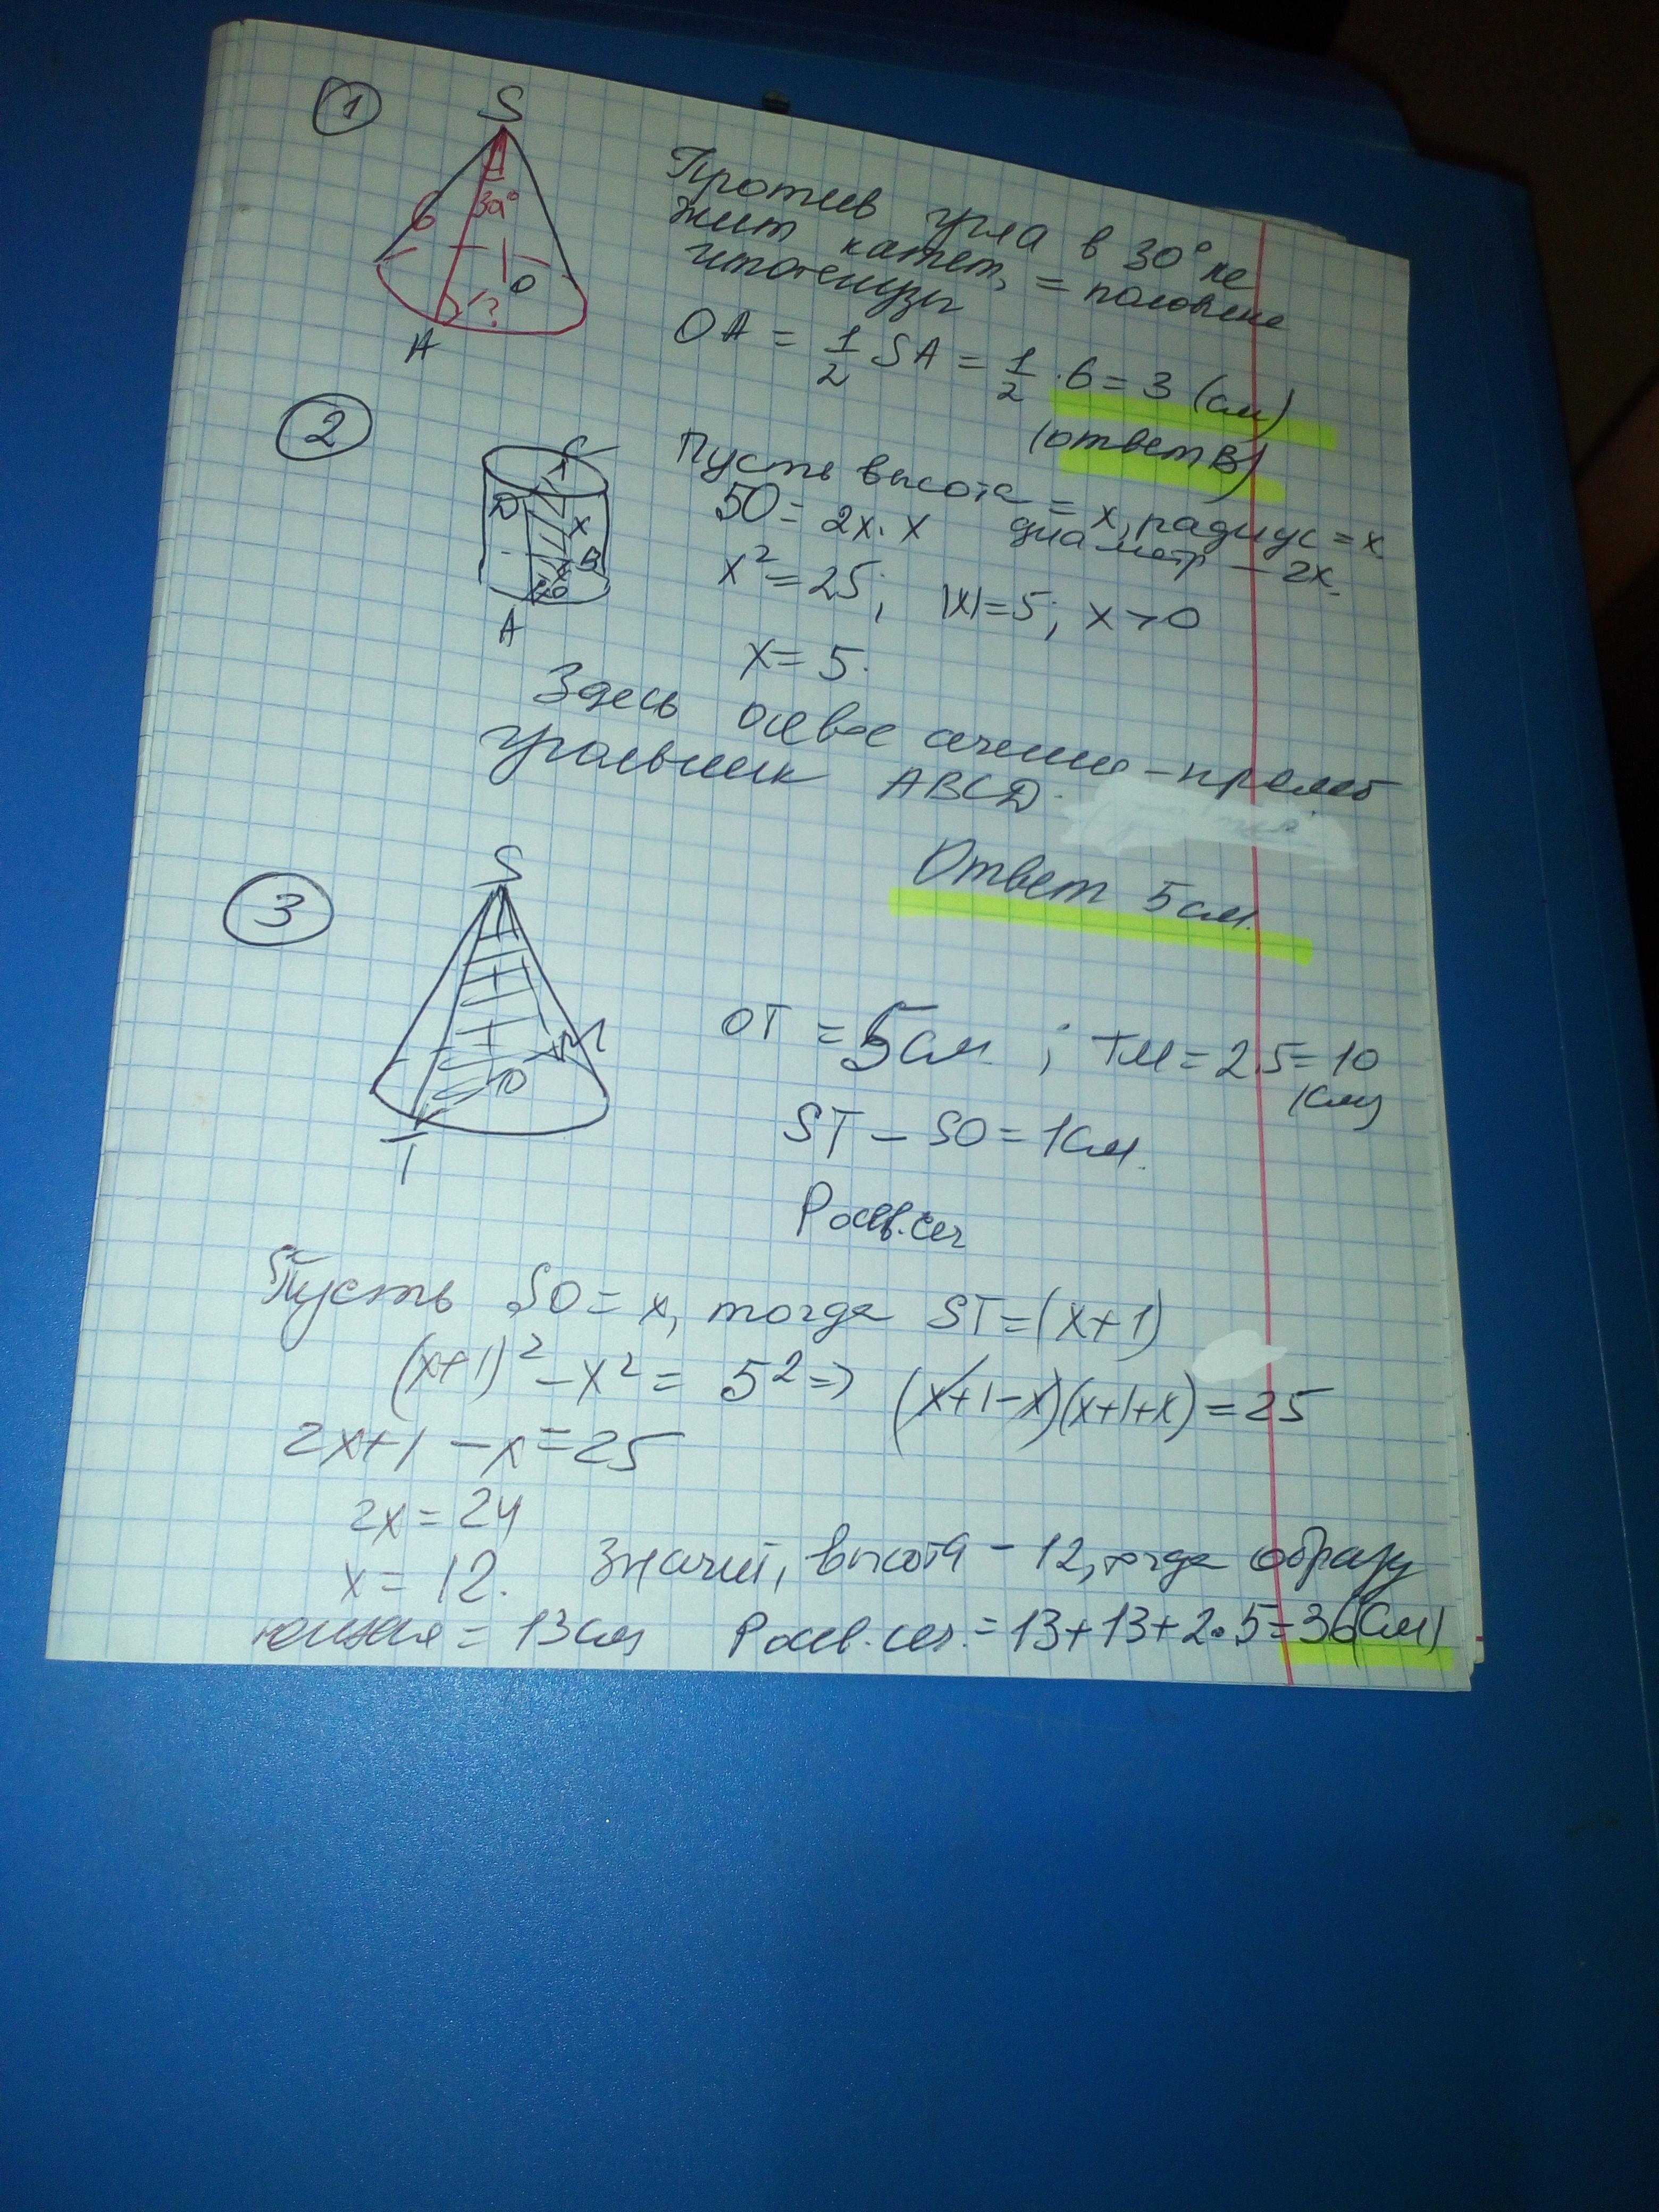 1
S
6
30°
O
?
A
Против угла в 30° ле
жит катет, = половине
гипотенузы
OA = 1/2 SA = 1/2 · 6 = 3 (см)
(ответ В)
2
C
D
x
B
A
Пусть высота = x, радиус = x
50 = 2x · x диаметр – 2x.
x² = 25; |x| = 5; x > 0
x = 5.
Здесь осевое сечение – прямоу
угольник ABCD.
Ответ 5 см.
3
S
O
M
T
OT = 5 см ; TM = 2·5 = 10
(см)
ST – SO = 1 см.
P осев. сеч
Пусть SO = x, тогда ST = (x+1)
(x+1)² – x² = 5² ⇒ (x+1–x)(x+1+x) = 25
2x+1 –x = 25
2x = 24
x = 12. Значит, высота – 12, тогда образу
ющая = 13 см P осев. сеч. = 13+13+2·5=36(см)